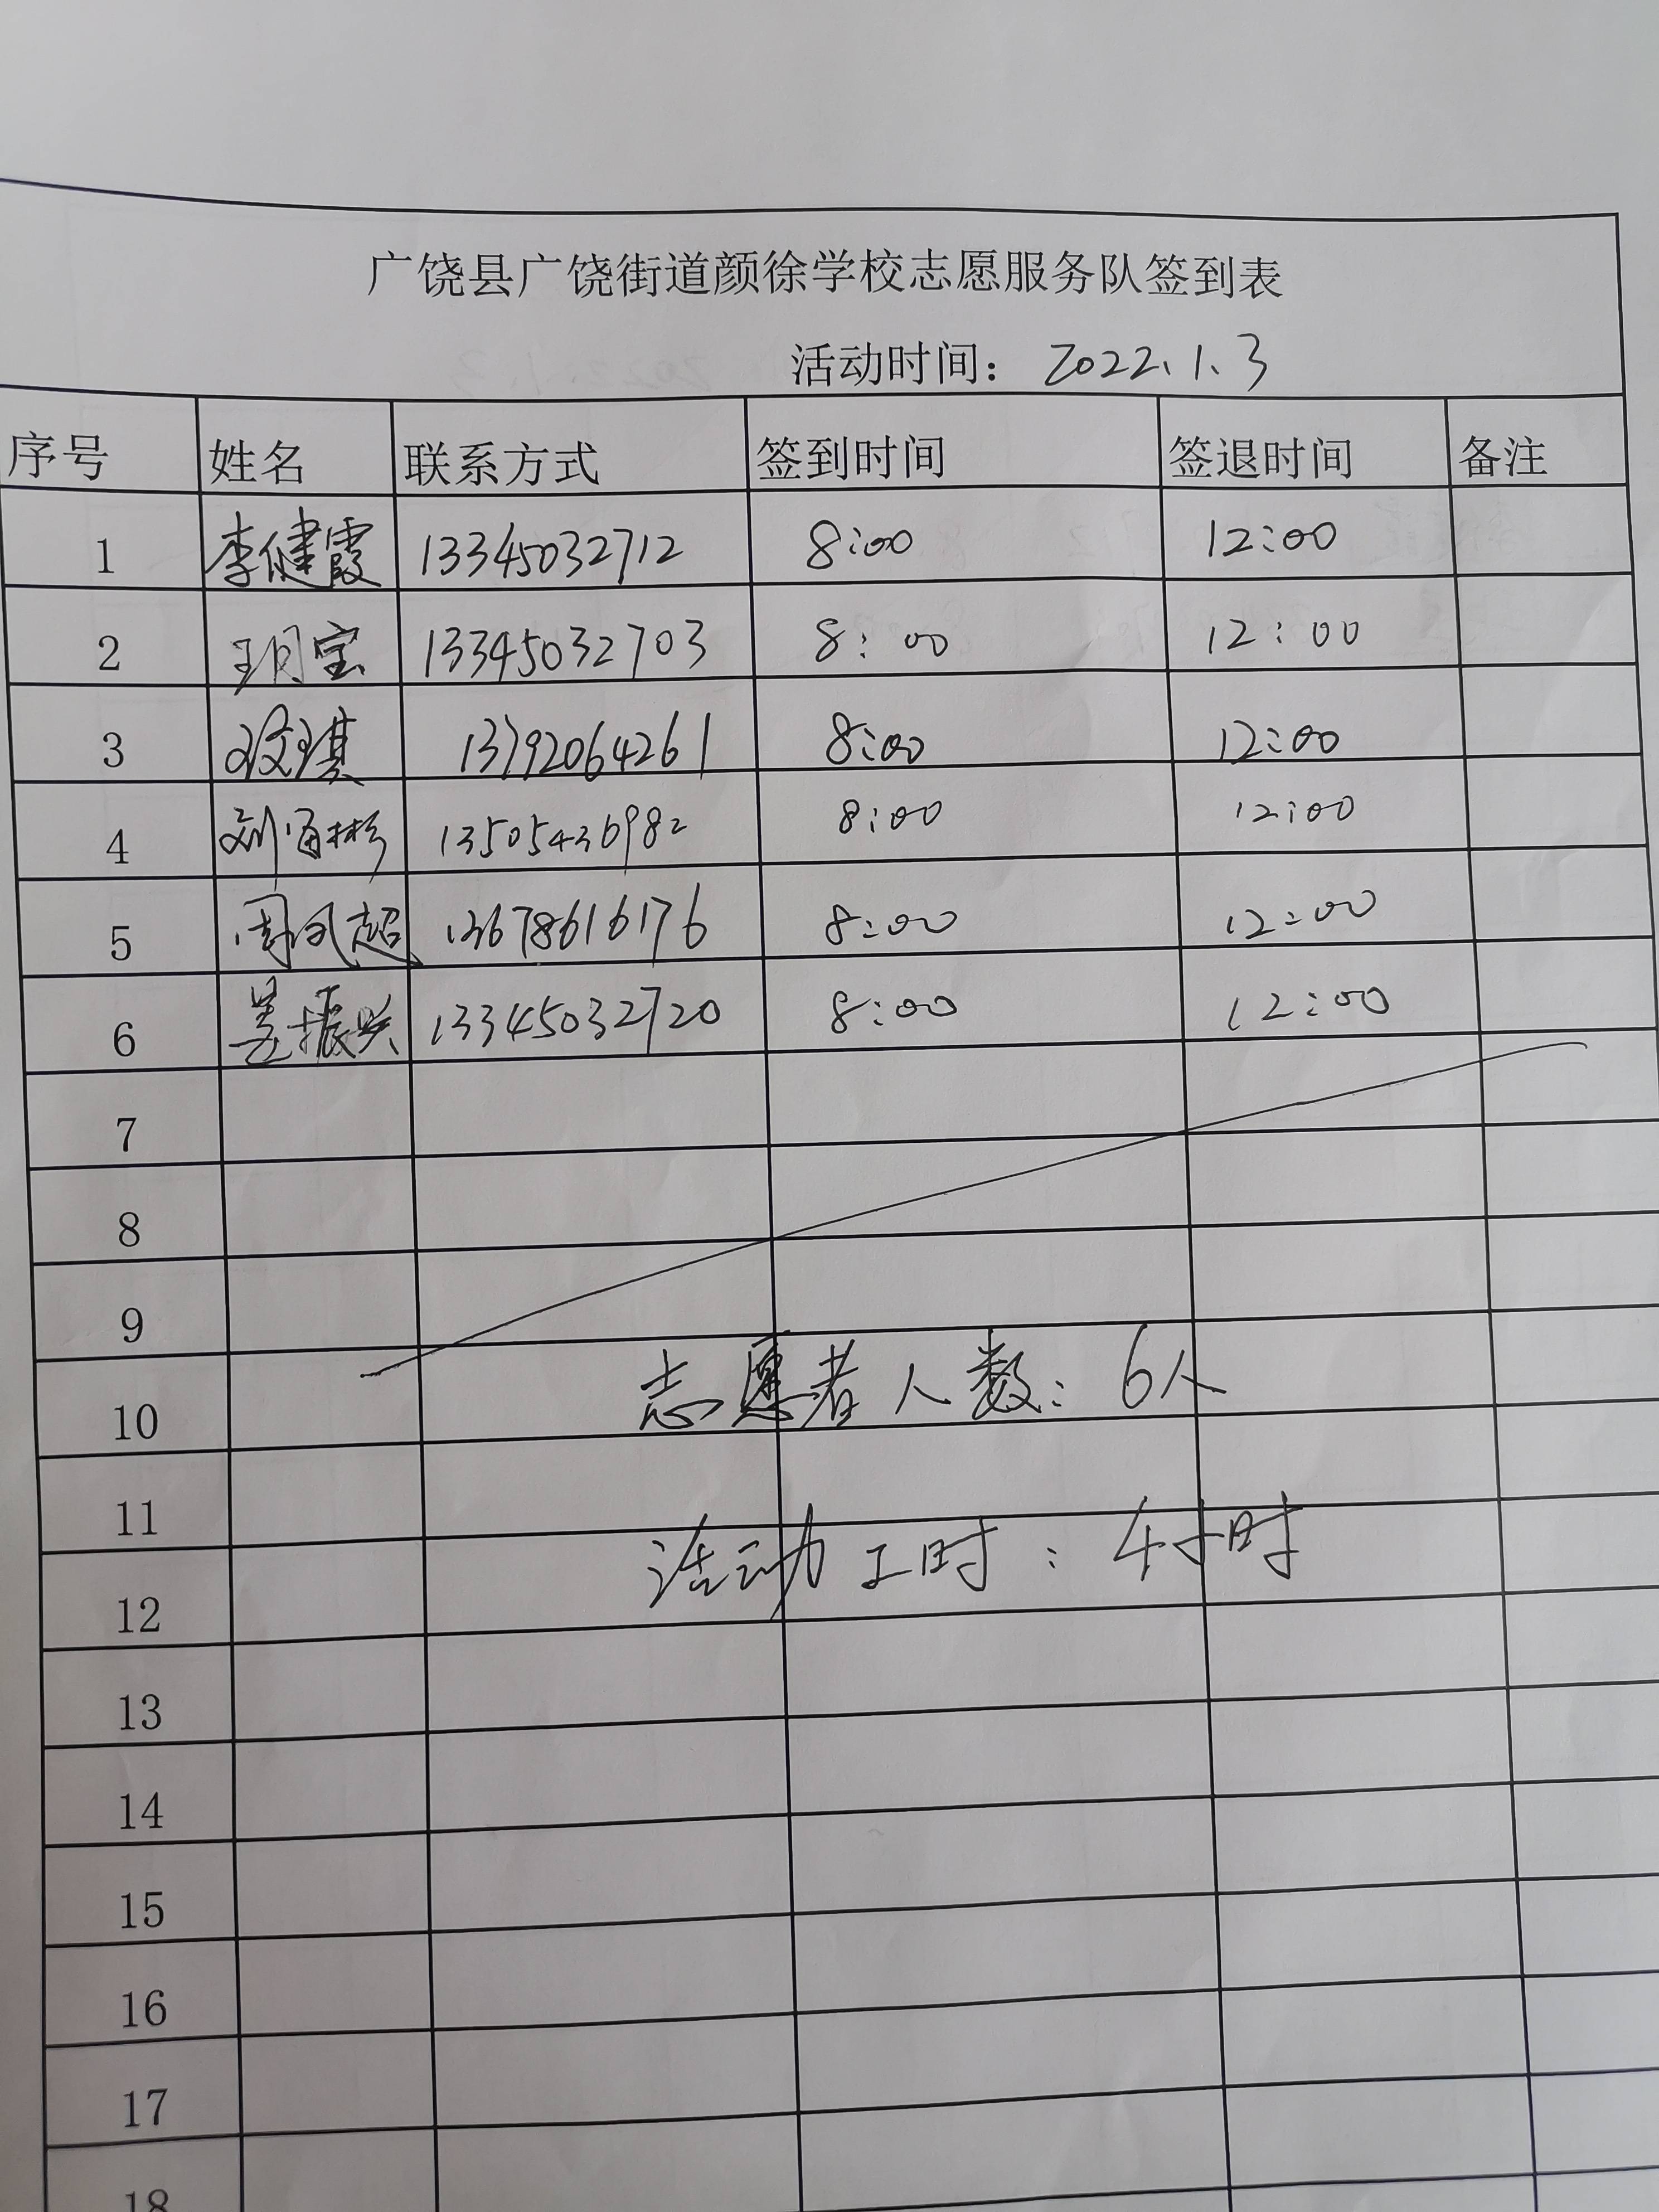 广饶县广饶街道颜徐学校志愿服务队签到表
活动时间： 2022.1.3
序号 姓名 联系方式 签到时间 签退时间 备注
1 李健霞 13345032712 8:00 12:00
2 13345032703 8:00 12:00
3 13792064261 8:00 12:00
4 13505436982 8:00 12:00
5 周凤超 13678616176 8:00 12:00
6 振兴 13345032720 8:00 12:00
7
8
9
志愿者人数：6人
10
11
活动工时：4小时
12
13
14
15
16
17
18